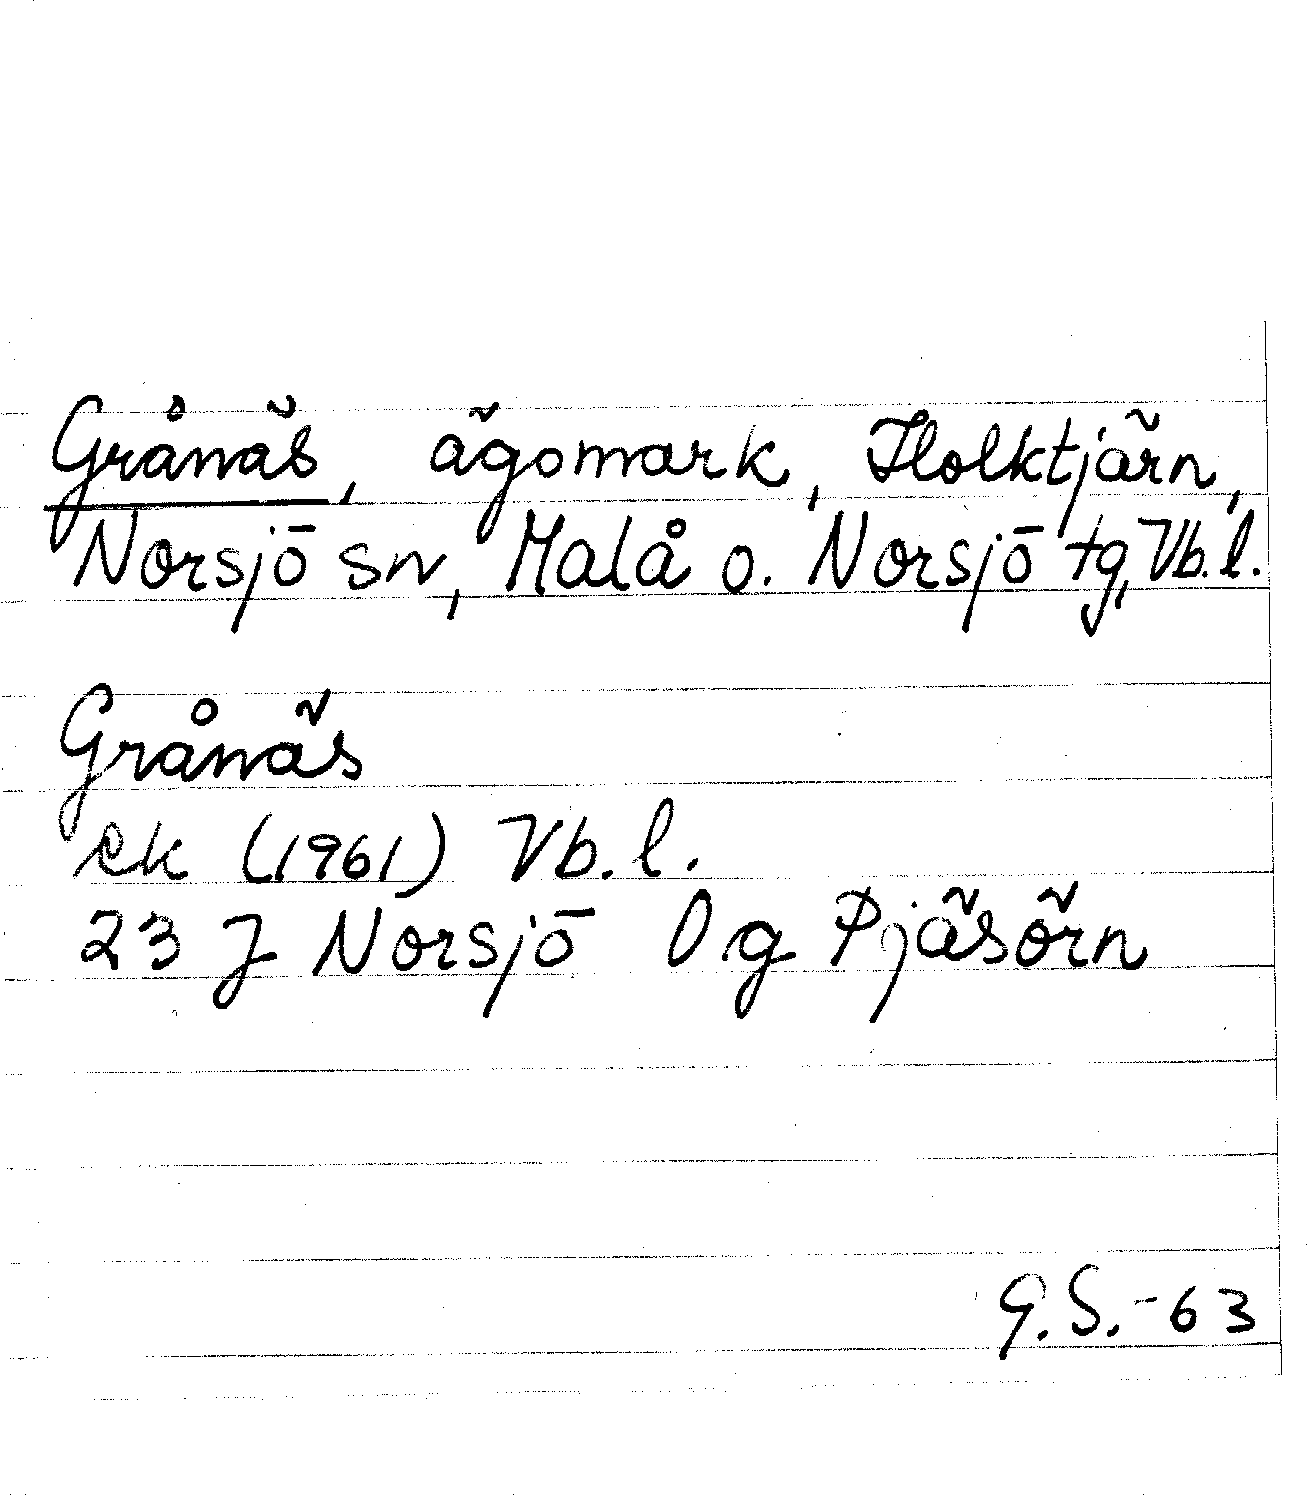 Grånäs, ägomark, Holktjärn,
Norsjö sn, Malå o. Norsjö tg, Vb. l.
Grånäs
ek (1961) Vb. l.
23 J Norsjö 0 g Pjäsörn
G.S.-63